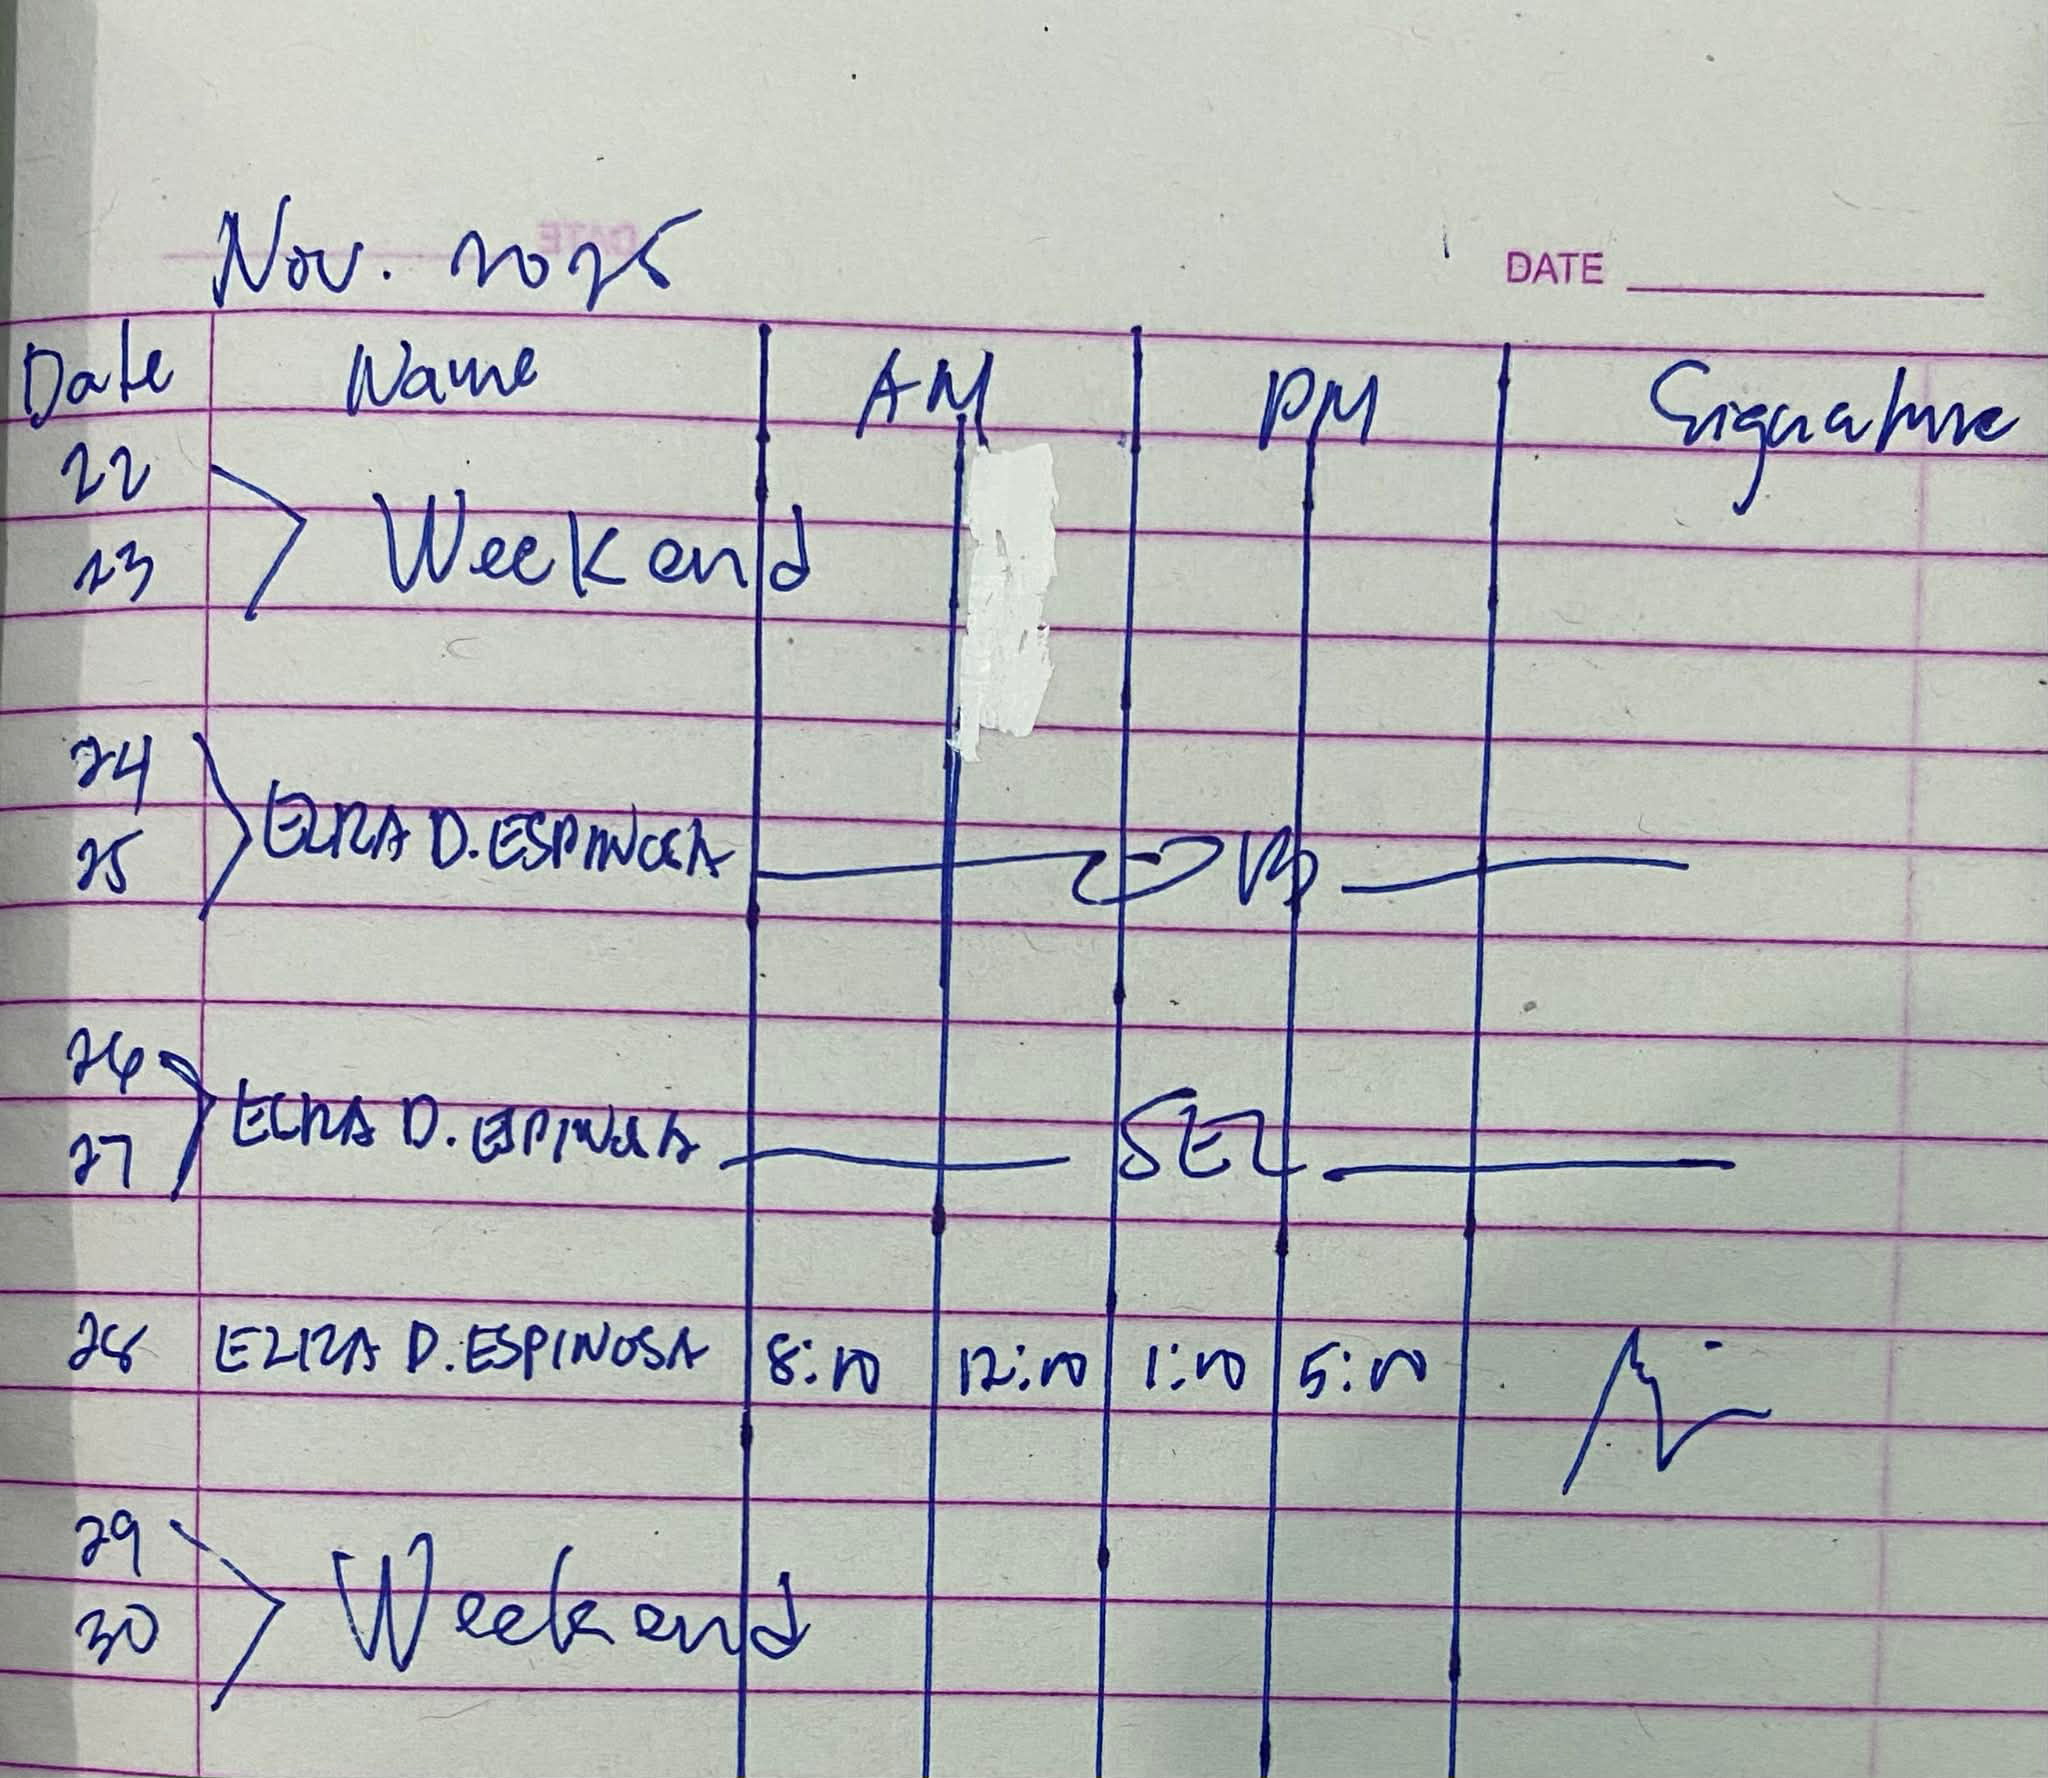 Nov. 2025
DATE
Date Name AM PM Signature
22
Weekend
23
24
ELIZA D. ESPINOSA
25
26
ELIZA D. ESPINOSA SEL
27
28 ELIZA D. ESPINOSA 8:00 12:00 1:00 5:00
29
Weekend
30